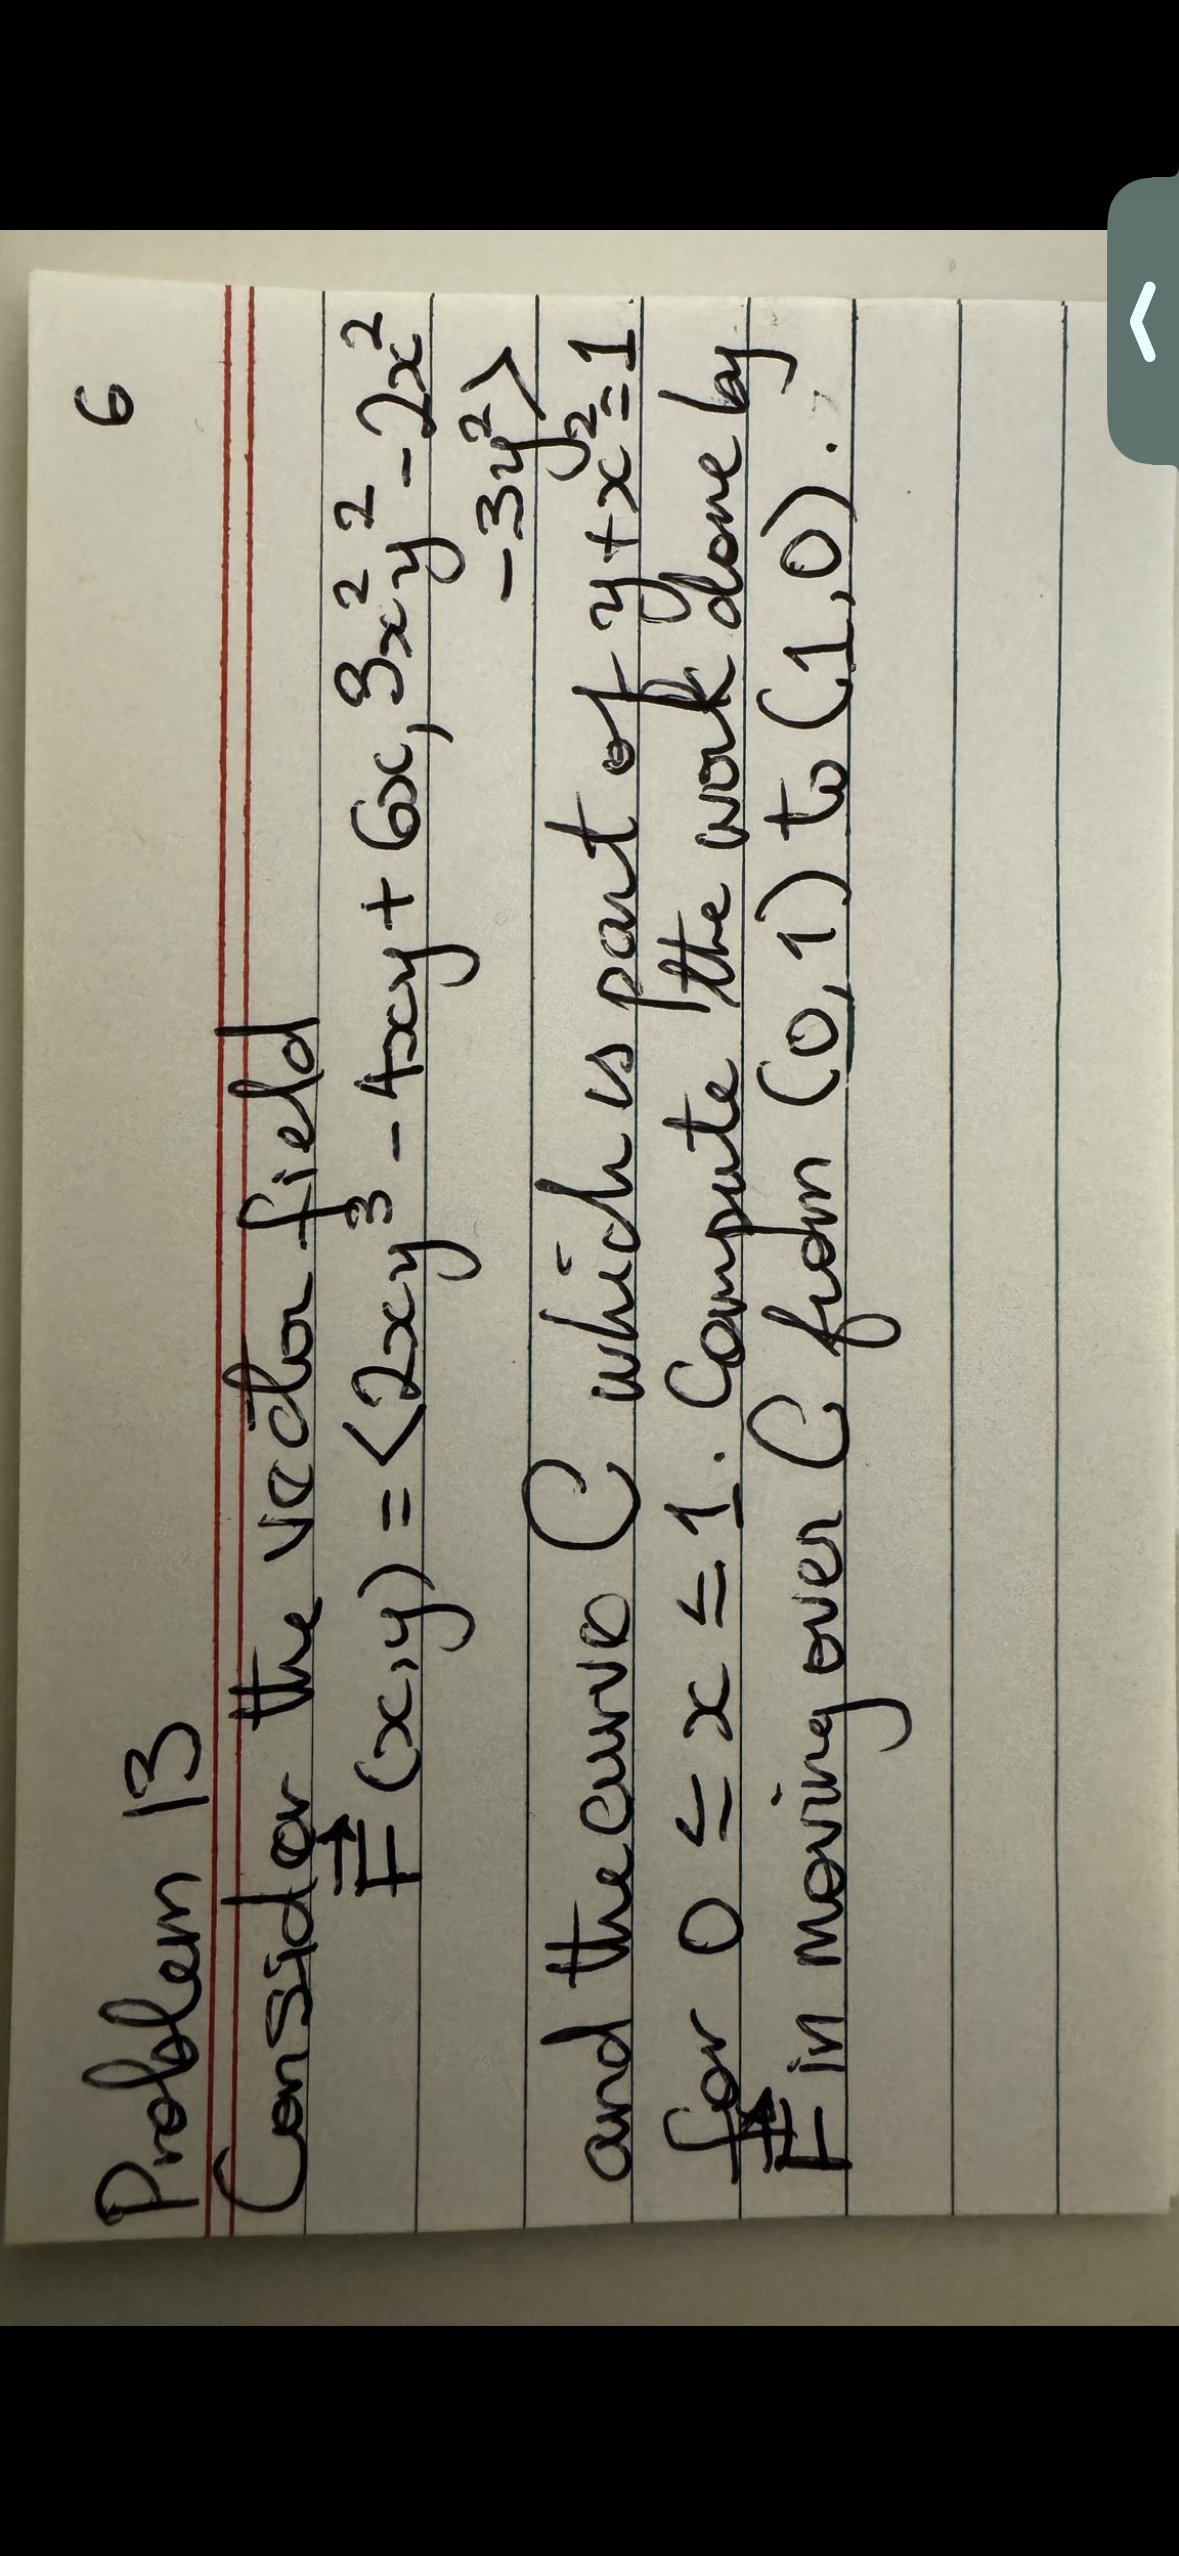 6
Problem 13
Consider the vector field
F⃗(x,y) = <2xy³ - 4xy + 6x, 3x²y² - 2x²
- 3y²>
and the curve C which is part of y + x² = 1
for 0 ≤ x ≤ 1. Compute the work done by
F⃗ in moving over C from (0,1) to (1,0).